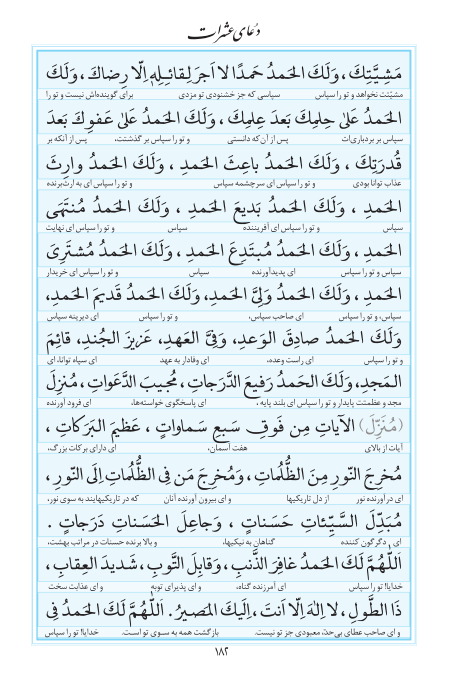 دعای عشرات
مَشِیَّتِکَ، وَلَکَ الحَمدُ حَمدًا لا اَجرَ لِقائِـلِهِ اِلّا رِضاکَ، وَلَکَ
مشیّتت نخواهد و تو را سپاس سپاسی که جز خشنودی تو مزدی برای گوینده‌اش نیست و تو را
الحَمدُ عَلیٰ حِلمِکَ بَعدَ عِلمِکَ ، وَلَکَ الحَمدُ عَلیٰ عَفوِکَ بَعدَ
سپاس بر بردباری‌ات پس از آن‌که دانستی و تو را سپاس بر گذشتت، پس از آنکه بر
قُدرَتِکَ ، وَلَکَ الحَمدُ باعِثَ الحَمدِ ، وَلَکَ الحَمدُ وارِثَ
عذاب توانا بودی و تو را سپاس ای سرچشمه سپاس و تو را سپاس ای به ارث‌برنده
الحَمدِ ، وَلَکَ الحَمدُ بَدیعَ الحَمدِ ، وَلَکَ الحَمدُ مُنتَهَی
سپاس و تو را سپاس ای آفریننده سپاس و تو را سپاس ای نهایت
الحَمدِ ، وَلَکَ الحَمدُ مُبتَدِعَ الحَمدِ ، وَلَکَ الحَمدُ مُشتَرِیَ
سپاس و تو را سپاس ای پدیدآورنده سپاس و تو را سپاس ای خریدار
الحَمدِ ، وَلَکَ الحَمدُ وَلِیَّ الحَمدِ، وَلَکَ الحَمدُ قَدیمَ الحَمدِ،
سپاس، و تو را سپاس ای صاحب سپاس، و تو را سپاس ای دیرینه سپاس
وَلَکَ الحَمدُ صادِقَ الوَعدِ، وَفِیَّ العَهدِ، عَزیزَ الجُندِ، قائِمَ
و تو را سپاس ای راست وعده، ای وفادار به عهد ای سپاه توانا، ای
المَجدِ، وَلَکَ الحَمدُ رَفیعَ الدَّرَجاتِ، مُجیبَ الدَّعَواتِ، مُنزِلَ
مجد و عظمتت پایدار و تو را سپاس ای بلند پایه ، ای پاسخگوی خواسته‌ها، ای فرود آورنده
(مُنَزِّلَ) الآیاتِ مِن فَوقِ سَبعِ سَماواتٍ ، عَظیمَ البَرَکاتِ ،
آیات از بالای هفت آسمان، ای دارای برکات بزرگ،
مُخرِجَ النّورِ مِنَ الظُّلُماتِ، وَمُخرِجَ مَن فِی الظُّلُماتِ اِلَی النّورِ ،
ای درآورنده نور از دل تاریکیها و ای بیرون آورنده آنان که در تاریکیهایند به سوی نور،
مُبَدِّلَ السَّیِّئاتِ حَسَناتٍ ، وَجاعِلَ الحَسَناتِ دَرَجاتٍ .
ای دگرگون کننده گناهان به نیکیها، و بالا برنده حسنات در مراتب بهشت،
اَللّٰهُمَّ لَکَ الحَمدُ غافِرَ الذَّنبِ، وَقابِلَ التَّوبِ، شَدیدَ العِقابِ،
خدایا! تو را سپاس ای آمرزنده گناه، و ای پذیرای توبه و ای عذابت سخت
ذَا الطَّولِ ، لا اِلٰهَ اِلّا اَنتَ ، اِلَیکَ المَصیرُ . اَللّٰهُمَّ لَکَ الحَمدُ فِی
و ای صاحب عطای بی‌حدّ، معبودی جز تو نیست. بازگشت همه به سـوی تو اسـت. خدایا! تو را سپاس
۱۸۲